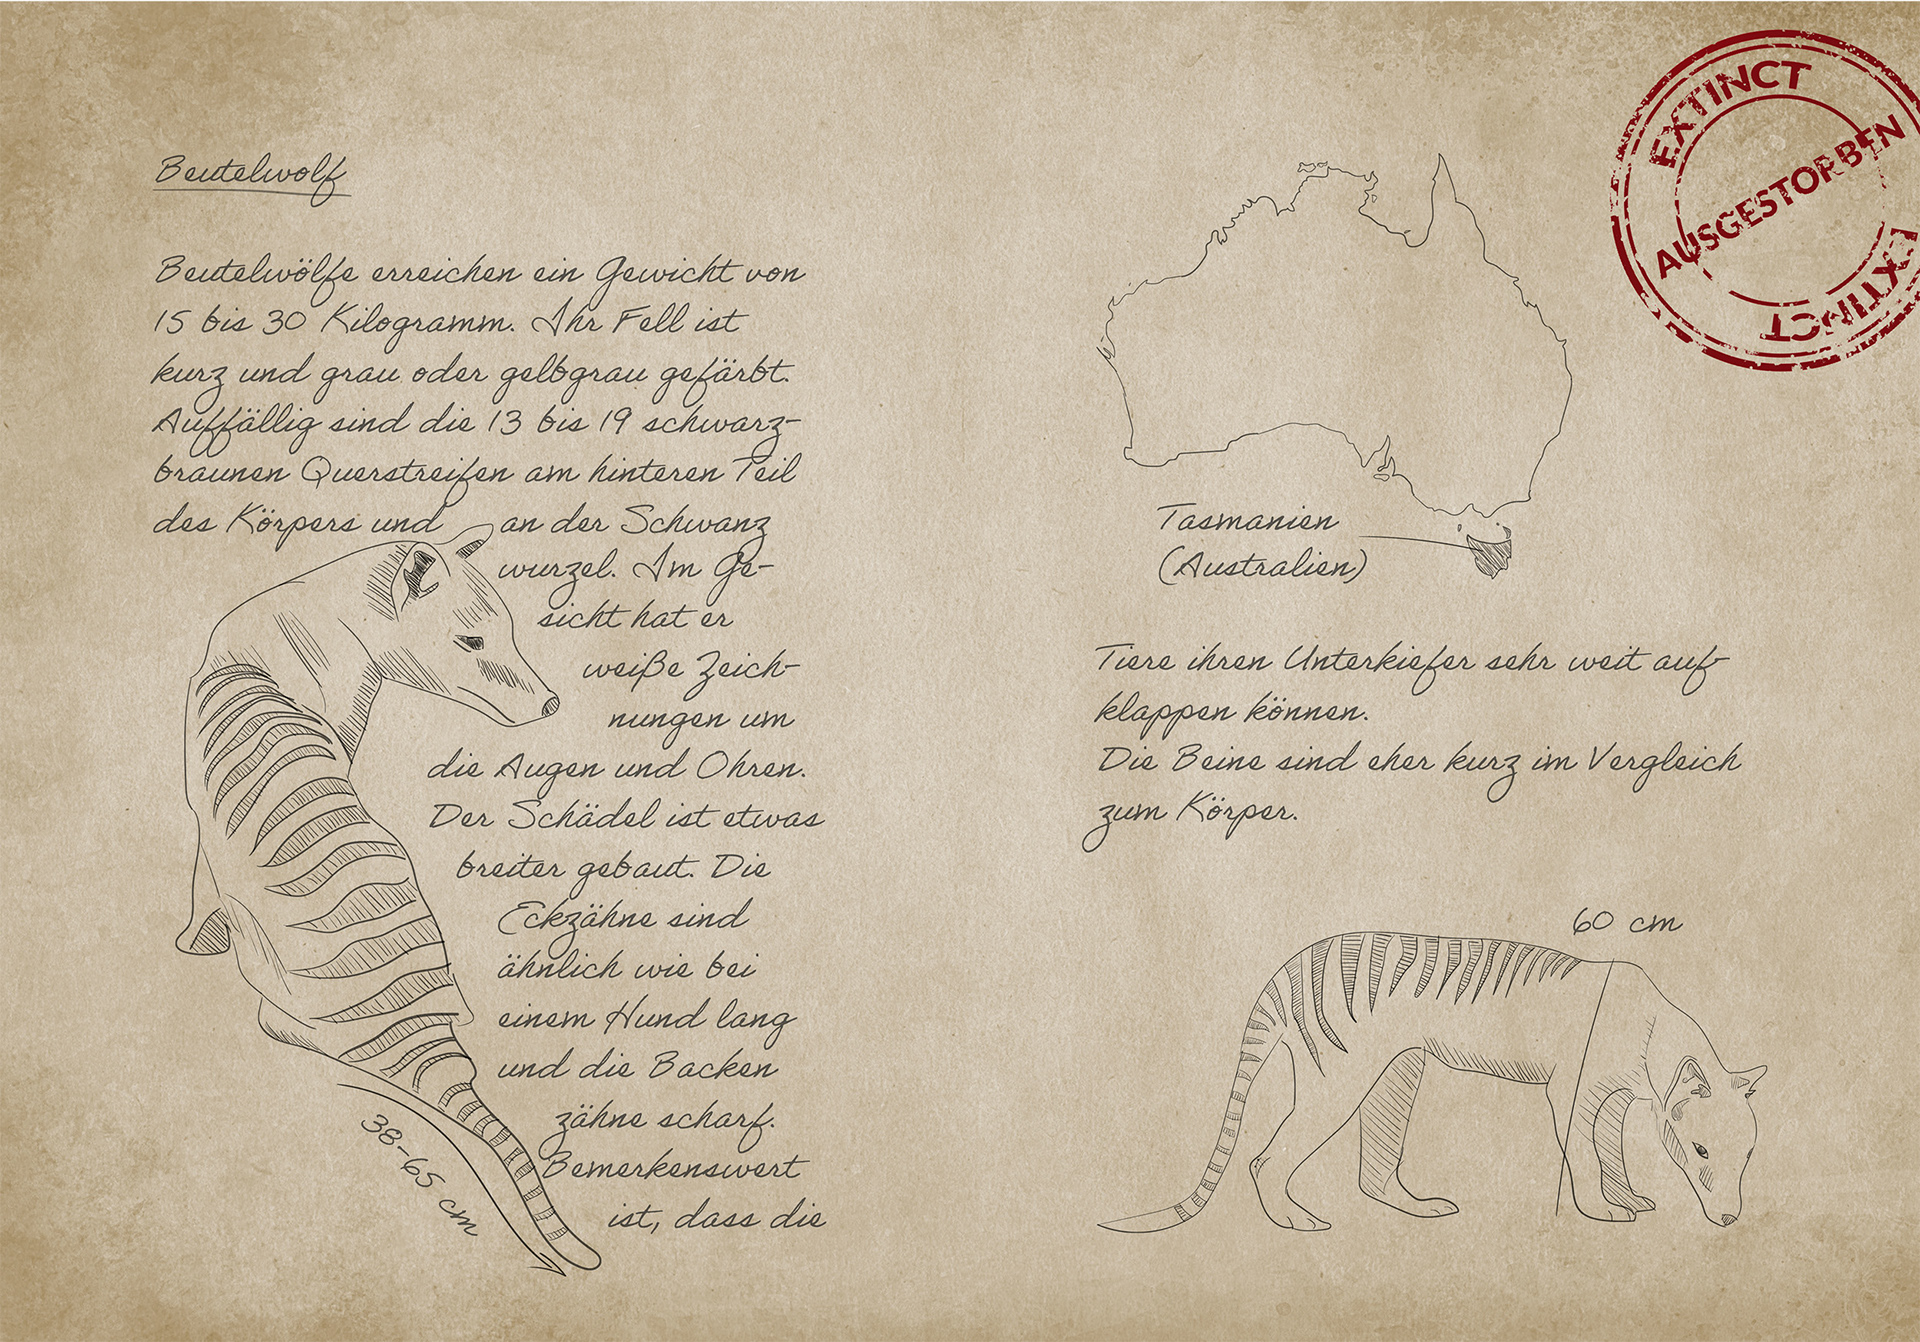 Beutelwolf
Beutelwölfe erreichen ein Gewicht von
15 bis 30 Kilogramm. Ihr Fell ist
kurz und grau oder gelbgrau gefärbt.
Auffällig sind die 13 bis 19 schwarz-
braunen Querstreifen am hinteren Teil
des Körpers und an der Schwanz
wurzel. Im Ge-
sicht hat er
weiße Zeich-
nungen um
die Augen und Ohren.
Der Schädel ist etwas
breiter gebaut. Die
Eckzähne sind
ähnlich wie bei
einem Hund lang
und die Backen
zähne scharf.
Bemerkenswert
ist, dass die
38-65 cm
EXTINCT
AUSGESTORBEN
EXTINCT
Tasmanien
(Australien)
Tiere ihren Unterkiefer sehr weit auf-
klappen können.
Die Beine sind eher kurz im Vergleich
zum Körper.
60 cm